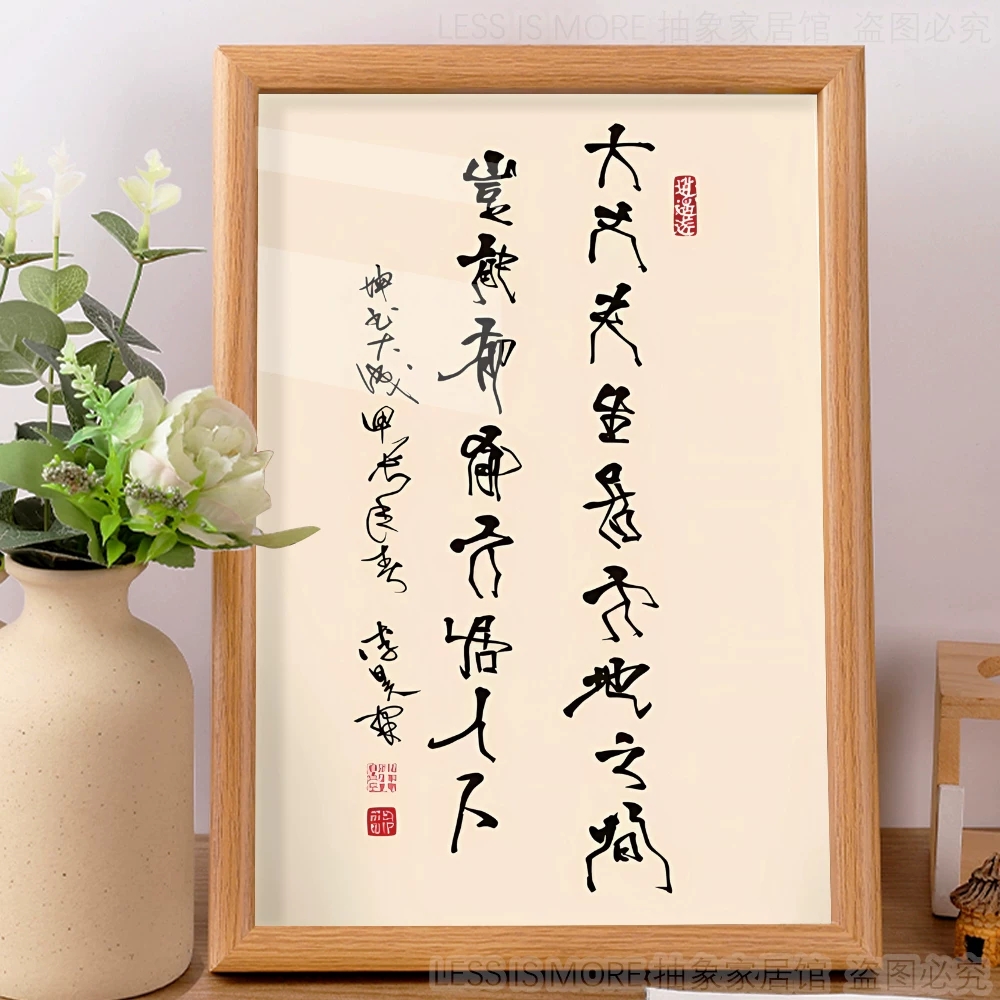 LESS IS MORE 抽象家居馆 盗图必究
大丈夫生居天地之間
豈能郁郁久居人下
甲辰年春
LESS IS MORE 抽象家居馆 盗图必究